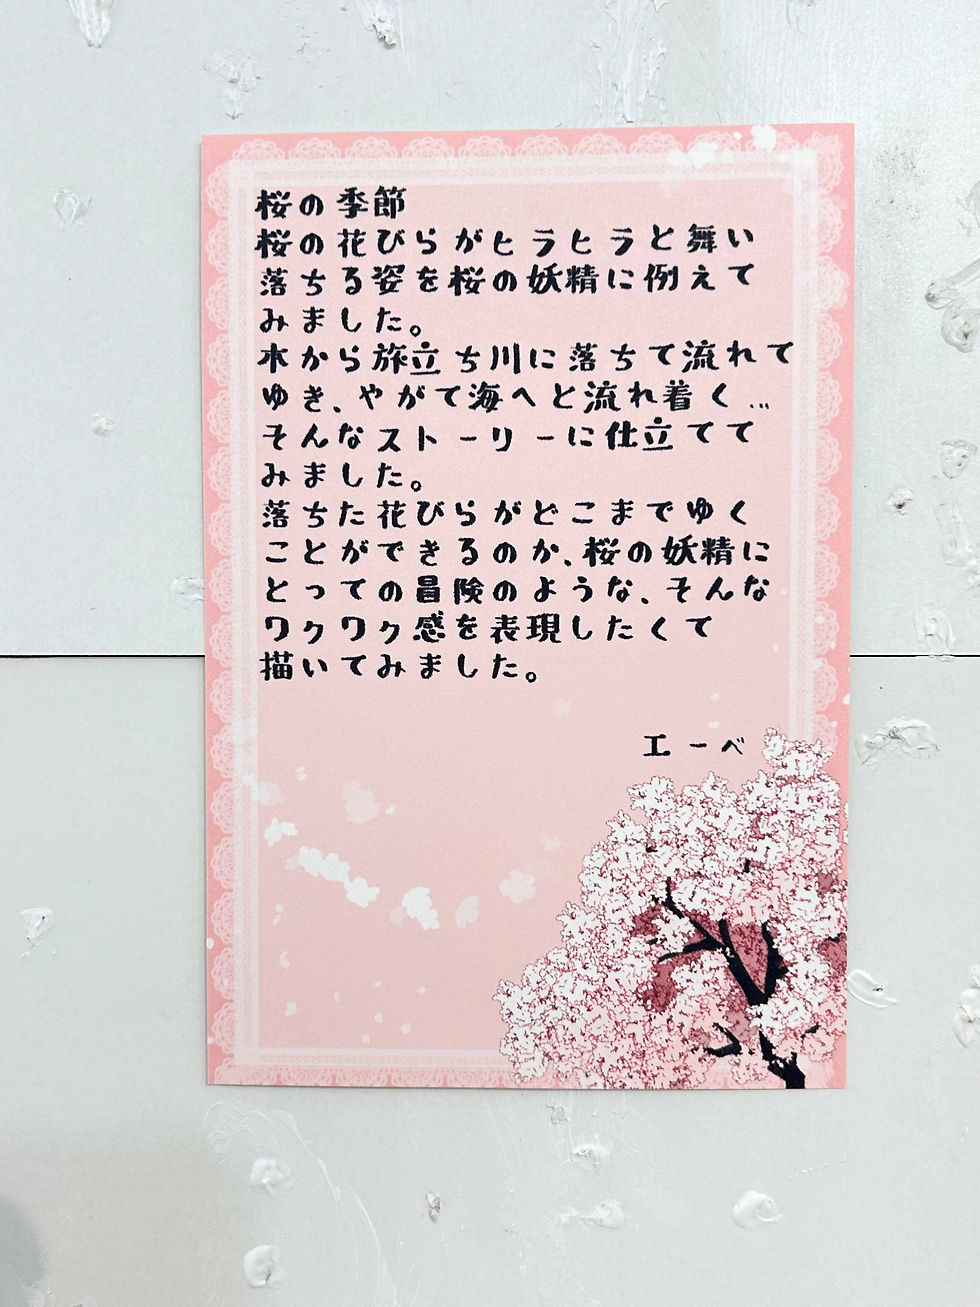 桜の季節
桜の花びらがヒラヒラと舞い
落ちる姿を桜の妖精に例えて
みました。
木から旅立ち川に落ちて流れて
ゆき、やがて海へと流れ着く…
そんなストーリーに仕立てて
みました。
落ちた花びらがどこまでゆく
ことができるのか、桜の妖精に
とっての冒険のような、そんな
ワクワク感を表現したくて
描いてみました。
エーベ